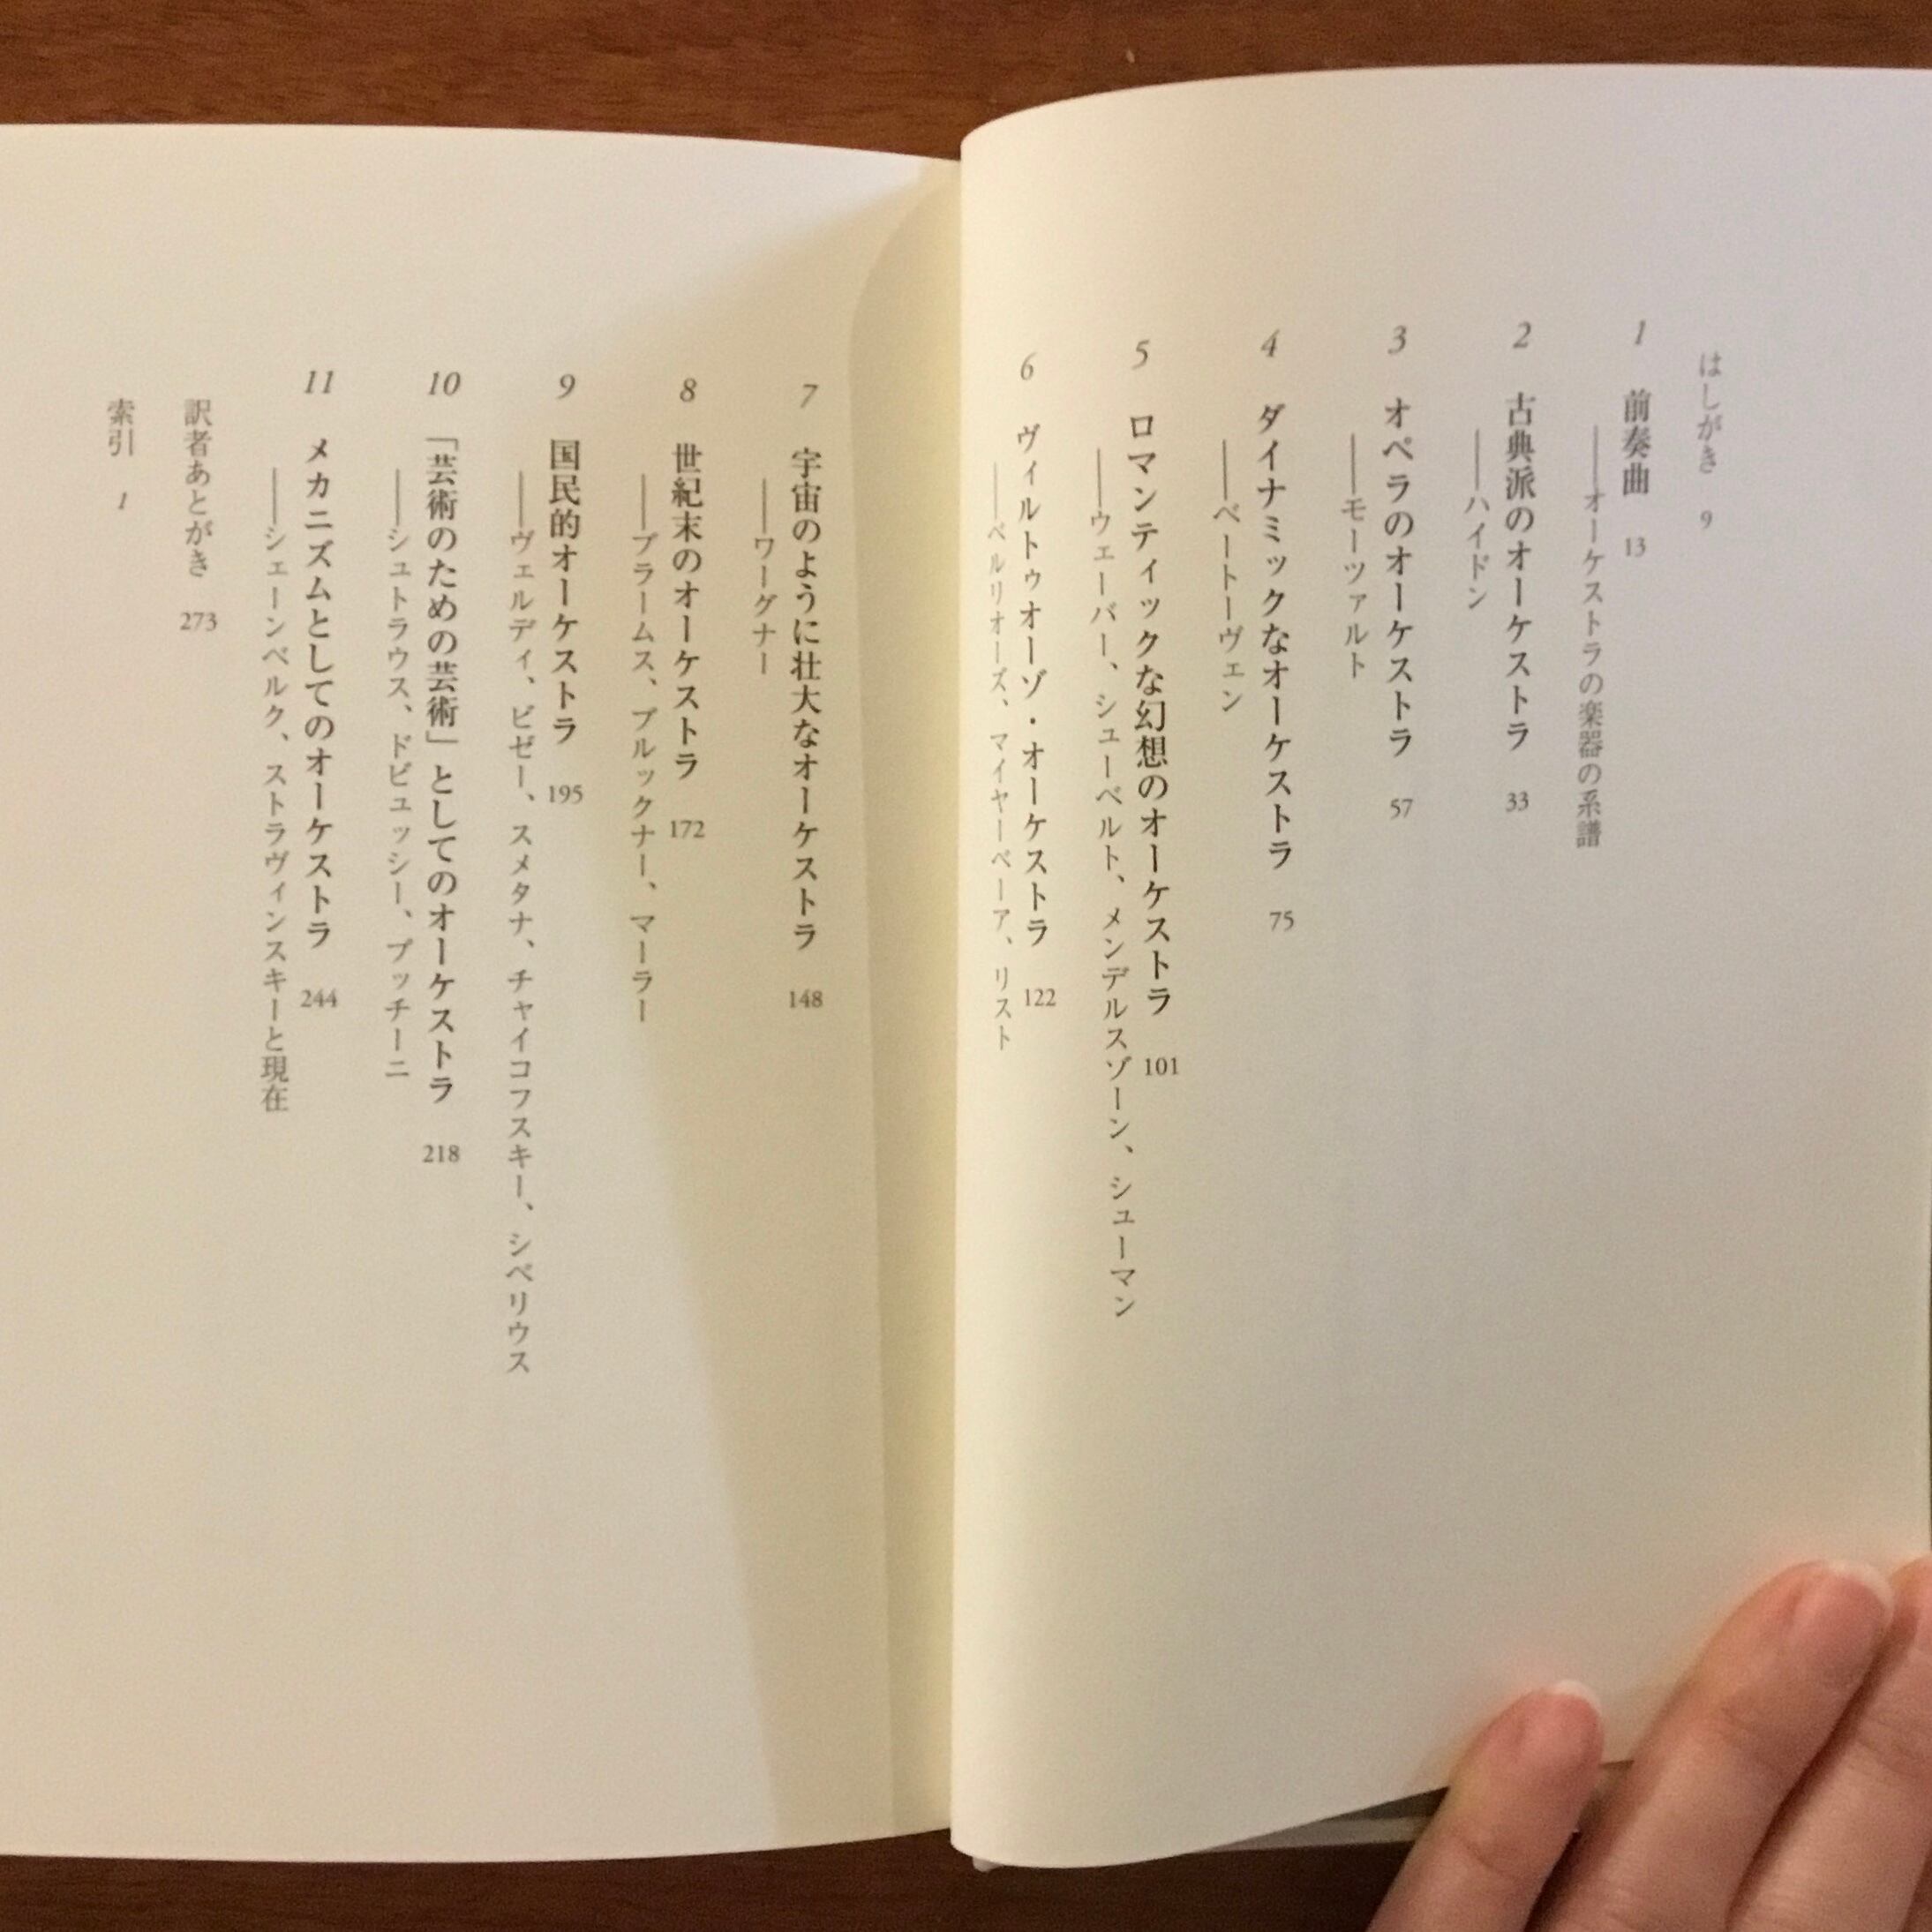 はしがき 9
1 前奏曲 13
――オーケストラの楽器の系譜
2 古典派のオーケストラ 33
――ハイドン
3 オペラのオーケストラ 57
――モーツァルト
4 ダイナミックなオーケストラ 75
――ベートーヴェン
5 ロマンティックな幻想のオーケストラ 101
――ウェーバー、シューベルト、メンデルスゾーン、シューマン
6 ヴィルトゥオーゾ・オーケストラ 122
――ベルリオーズ、マイヤーベーア、リスト
7 宇宙のように壮大なオーケストラ 148
――ワーグナー
8 世紀末のオーケストラ 172
――ブラームス、ブルックナー、マーラー
9 国民的オーケストラ 195
――ヴェルディ、ビゼー、スメタナ、チャイコフスキー、シベリウス
10 「芸術のための芸術」としてのオーケストラ 218
――シュトラウス、ドビュッシー、プッチーニ
11 メカニズムとしてのオーケストラ 244
――シェーンベルク、ストラヴィンスキーと現在
訳者あとがき 273
索引 1